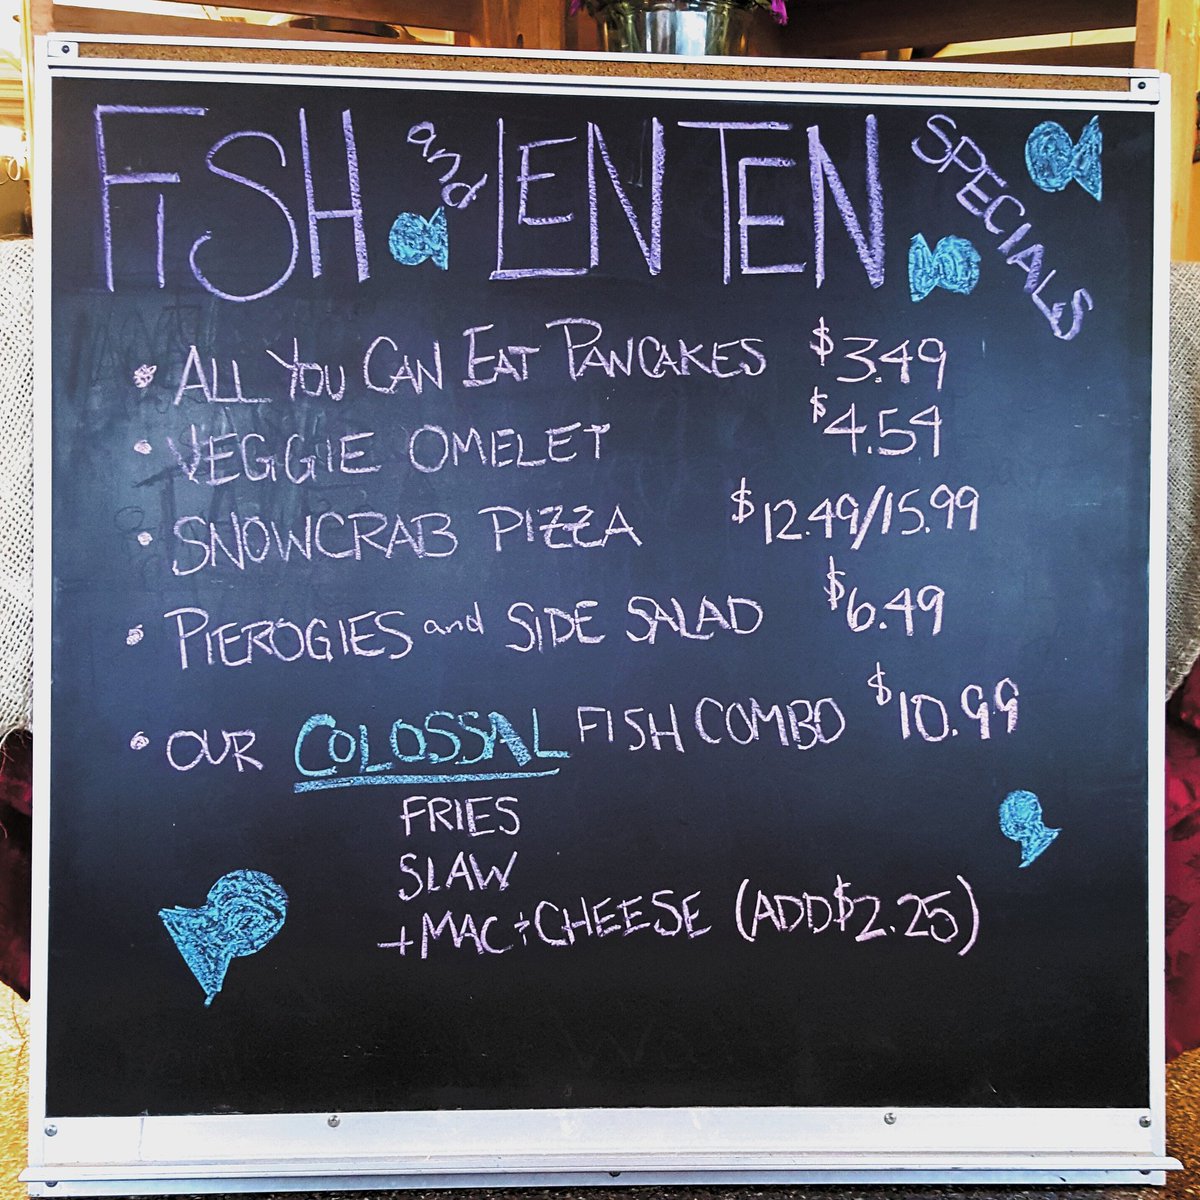 FISH and LENTEN SPECIALS
• ALL YOU CAN EAT PANCAKES $3.49
• VEGGIE OMELET $4.54
• SNOWCRAB PIZZA $12.49/15.99
• PIEROGIES and SIDE SALAD $6.49
• OUR COLOSSAL FISH COMBO $10.99
FRIES
SLAW
+MAC+CHEESE (ADD $2.25)